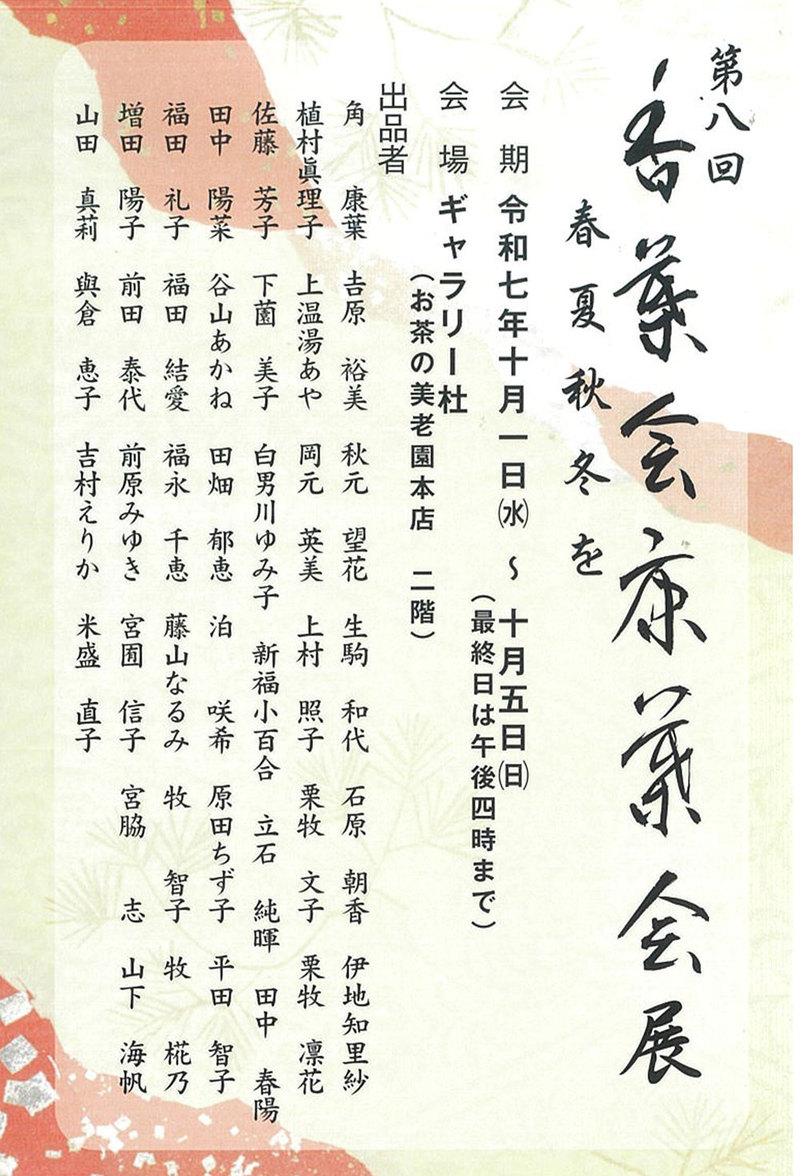 第八回
香葉会康葉会展
春夏秋冬を
会期 令和七年十月一日㈬ ~ 十月五日㈰
(最終日は午後四時まで)
会場 ギャラリー杜
(お茶の美老園本店 二階)
出品者
角 康葉 𠮷原 裕美 秋元 望花 生駒 和代 石原 朝香 伊地知里紗
植村眞理子 上温湯あや 岡元 英美 上村 照子 栗牧 文子 栗牧 凛花
佐藤 芳子 下薗 美子 白男川ゆみ子 新福小百合 立石 純暉 田中 春陽
田中 陽菜 谷山あかね 田畑 郁恵 泊 咲希 原田ちず子 平田 智子
福田 礼子 福田 結愛 福永 千恵 藤山なるみ 牧 智子 牧 椛乃
増田 陽子 前田 泰代 前原みゆき 宮囿 信子 宮脇 志 山下 海帆
山田 真莉 與倉 恵子 吉村えりか 米盛 直子